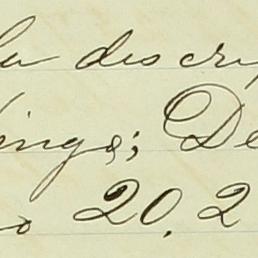 la discrip
ings; De
20, 2